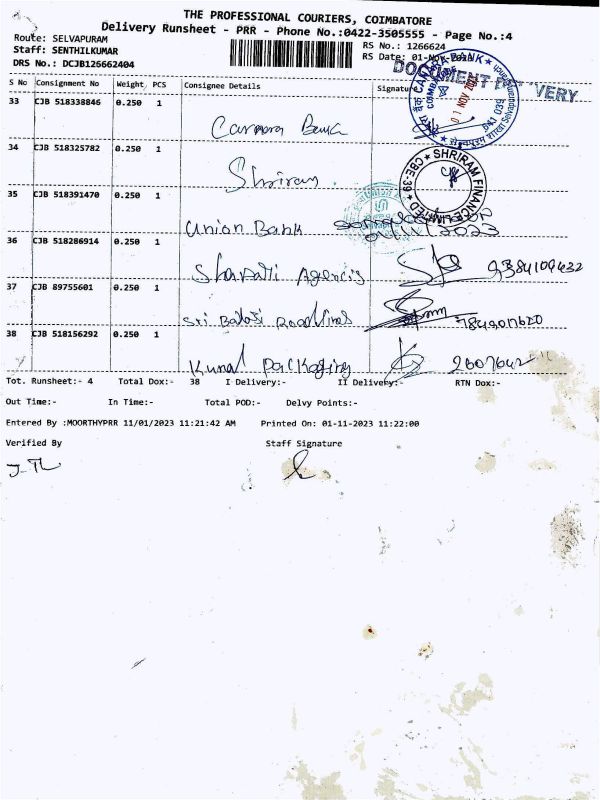 THE PROFESSIONAL COURIERS, COIMBATORE
Delivery Runsheet - PRR - Phone No.:0422-3505555 - Page No.:4
Route: SELVAPURAM
RS No.: 1266624
Staff: SENTHILKUMAR
RS Date: 01-Nov-2023
DRS No.: DCJB126662404
DOCUMENT DELIVERY
S No Consignment No Weight PCS Consignee Details Signature
33 CJB 518338846 0.250 1
Canara Bank
CANARA BANK
COIMBATORE
01 NOV 2023
34 CJB 518325782 0.250 1
Shriram
SHRIRAM FINANCE LIMITED
CBE-39
35 CJB 518391470 0.250 1
Union Bank
01/11/2023
36 CJB 518286914 0.250 1
Sharadi Agencis 9384109432
37 CJB 89755601 0.250 1
Sri Balaji Roadlines
38 CJB 518156292 0.250 1
Kunal Packaging 2607642
Tot. Runsheet:- 4 Total Dox:- 38 I Delivery:- II Delivery:- RTN Dox:-
Out Time:- In Time:- Total POD:- Delvy Points:-
Entered By :MOORTHYPRR 11/01/2023 11:21:42 AM Printed On: 01-11-2023 11:22:00
Verified By Staff Signature